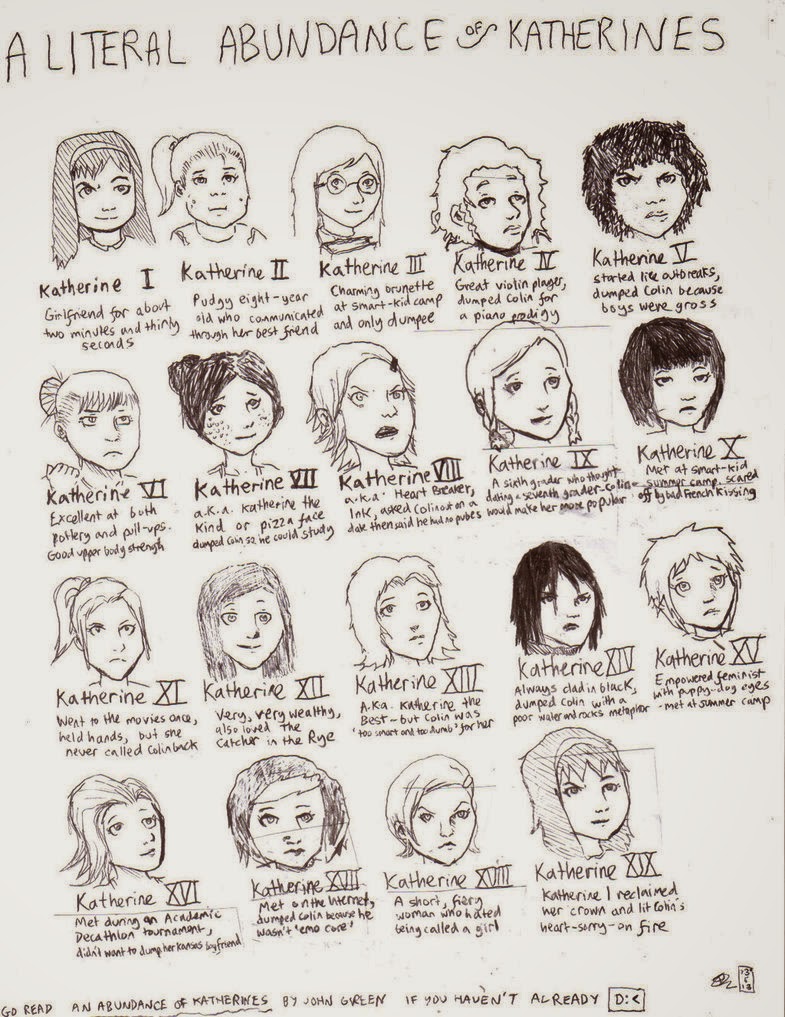 A LITERAL ABUNDANCE OF KATHERINES
Katherine I
Girlfriend for about
two minutes and thirty
seconds
Katherine II
Pudgy eight-year
old who communicated
through her best friend
Katherine III
Charming brunette
at smart-kid camp
and only dumpee
Katherine IV
Great violin player,
dumped Colin for
a piano prodigy
Katherine V
started lice outbreaks,
dumped Colin because
boys were gross
Katherine VI
Excellent at both
pottery and pull-ups.
Good upper body strength
Katherine VII
a.k.a. Katherine the
Kind or pizza face
dumped Colin so he could study
Katherine VIII
a.k.a. Heart Breaker,
Ink, asked Colin out on a
date then said he had no pubes
Katherine IX
A sixth grader who thought
dating a seventh grader-Colin-
would make her more popular
Katherine X
Met at smart-kid
summer camp. scared
off by bad French kissing
Katherine XI
Went to the movies once,
held hands, but she
never called Colin back
Katherine XII
Very, very wealthy,
also loved The
Catcher in the Rye
Katherine XIII
A.K.a. Katherine the
Best - but Colin was
'too smart and too dumb' for her
Katherine XIV
Always clad in black,
dumped Colin with a
poor water and rocks metaphor
Katherine XV
Empowered feminist
with puppy-dog eyes
-met at summer camp
Katherine XVI
Met during an Academic
Decathlon tournament,
didn't want to dump her Kansas boyfriend
Katherine XVII
Met on the Internet,
dumped Colin because he
wasn't 'emo core'
Katherine XVIII
A short, fiery
woman who hated
being called a girl
Katherine XIX
Katherine I reclaimed
her crown and lit Colin's
heart-sorry-on fire
GO READ AN ABUNDANCE OF KATHERINES BY JOHN GREEN IF YOU HAVEN'T ALREADY D:<